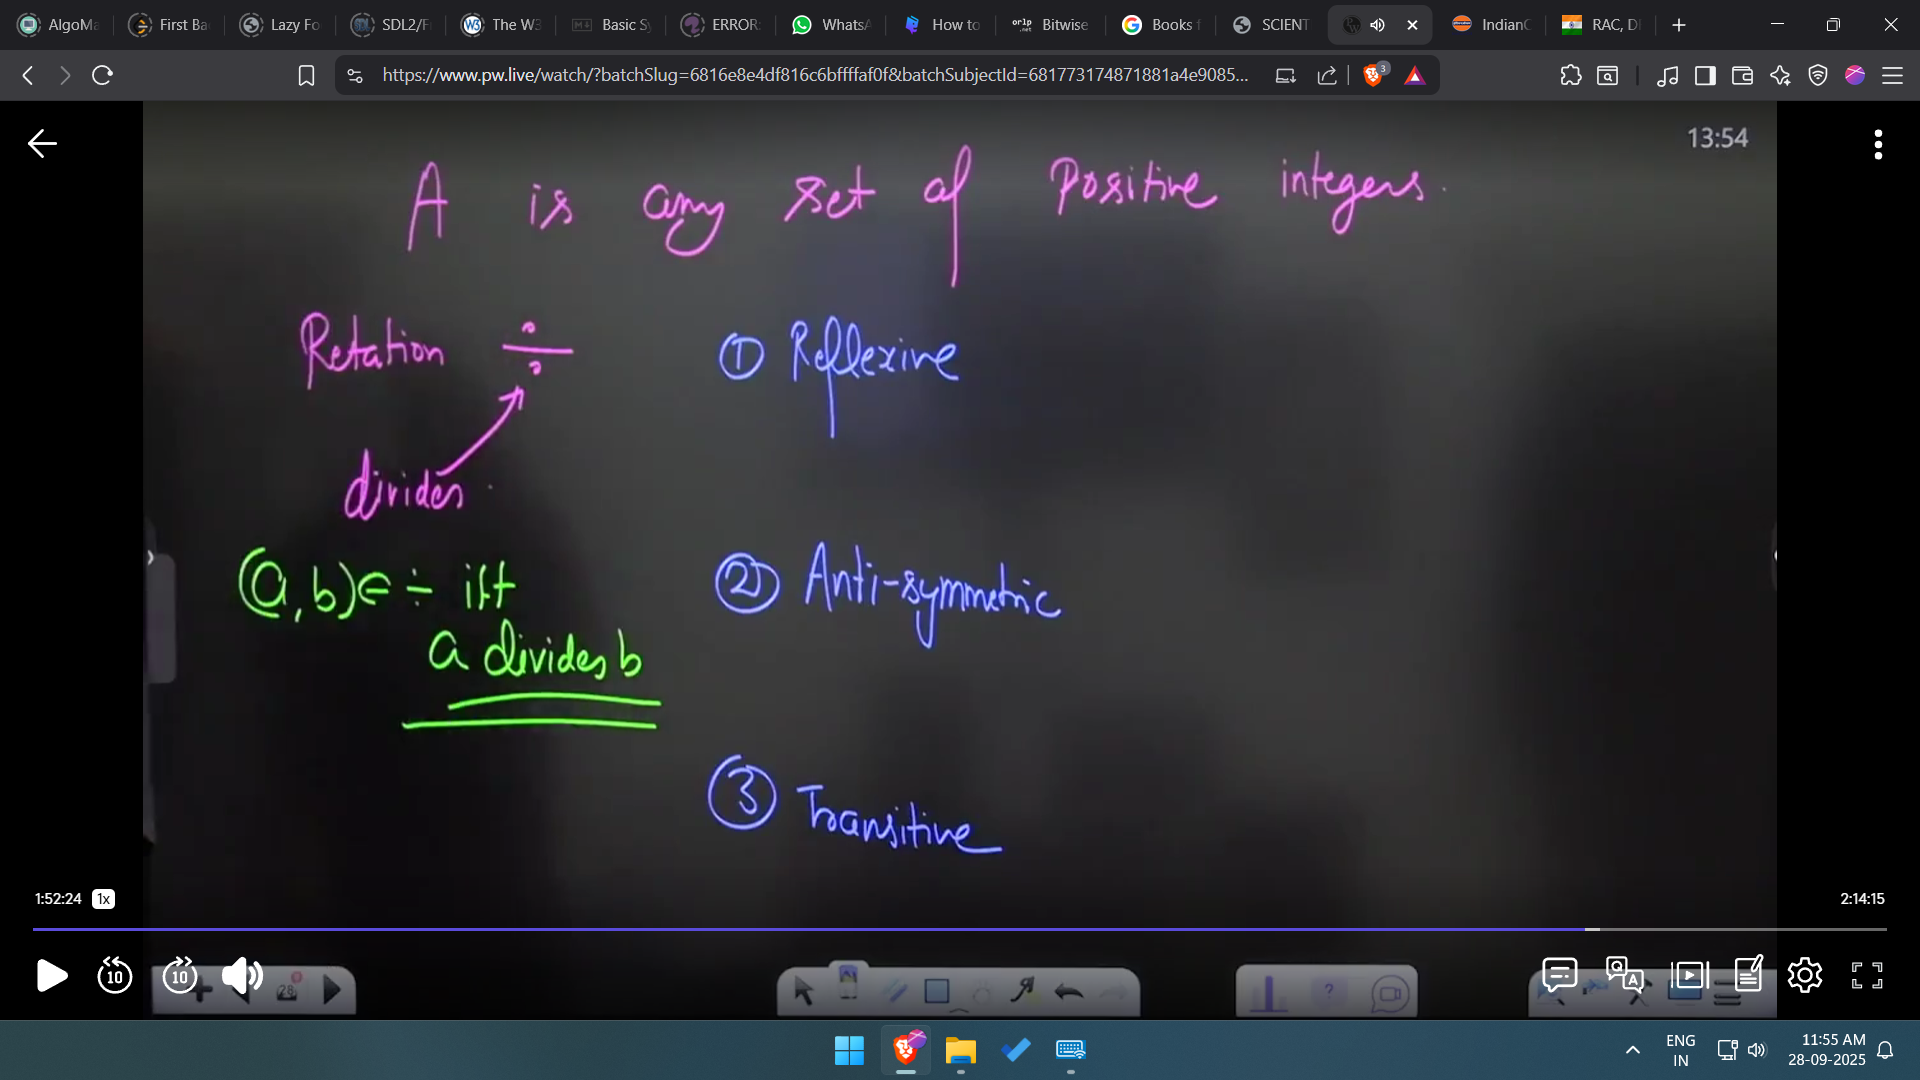 AlgoMa
First Ba
Lazy Fo
SDL2/F
The W3
Basic Sy
ERROR:
WhatsA
How to
Bitwise
Books f
SCIENT
IndianO
RAC, D
https://www.pw.live/watch/?batchSlug=6816e8e4df816c6bffffaf0f&batchSubjectId=681773174871881a4e9085...
3
13:54
A is any set of Positive integers.
Relation ÷
① Reflexive
divides
(a,b)∈ ÷ iff
② Anti-symmetric
a divides b
③ Transitive
1:52:24 1x
2:14:15
10
10
28
ENG
IN
11:55 AM
28-09-2025